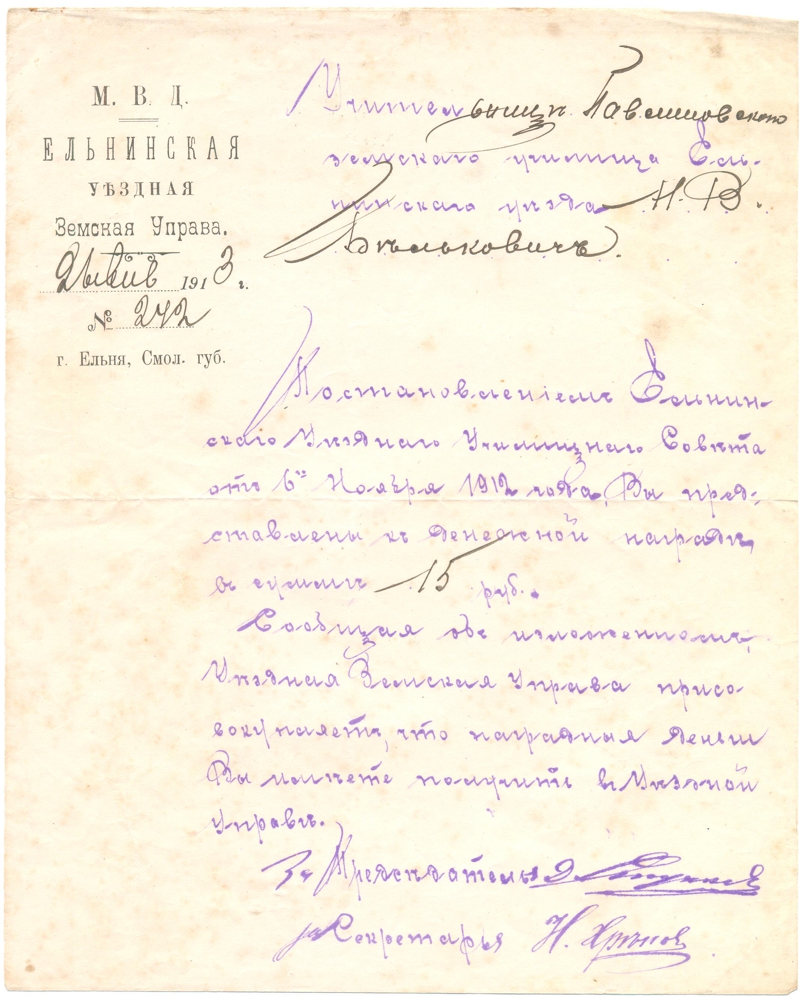 М. В. Д.
ЕЛЬНИНСКАЯ
УѢЗДНАЯ
Земская Управа.
1913 г.
№ 242
г. Ельня, Смол. губ.
Учительницѣ Павлиновского
земскаго училища Ель-
нинскаго уѣзда Н. В.
Бѣльковичъ.
Постановленіемъ Ельнин-
скаго Уѣзднаго Училищнаго Совѣта
отъ 6го Ноября 1912 года, Вы пред-
ставлены къ денежной наградѣ,
въ суммѣ 15 руб.
Сообщая объ изложенномъ,
Уѣздная Земская Управа присо-
вокупляетъ, что наградныя деньги
Вы можете получить въ Уѣздной
Управѣ.
За Предсѣдателя
за Секретаря Н.